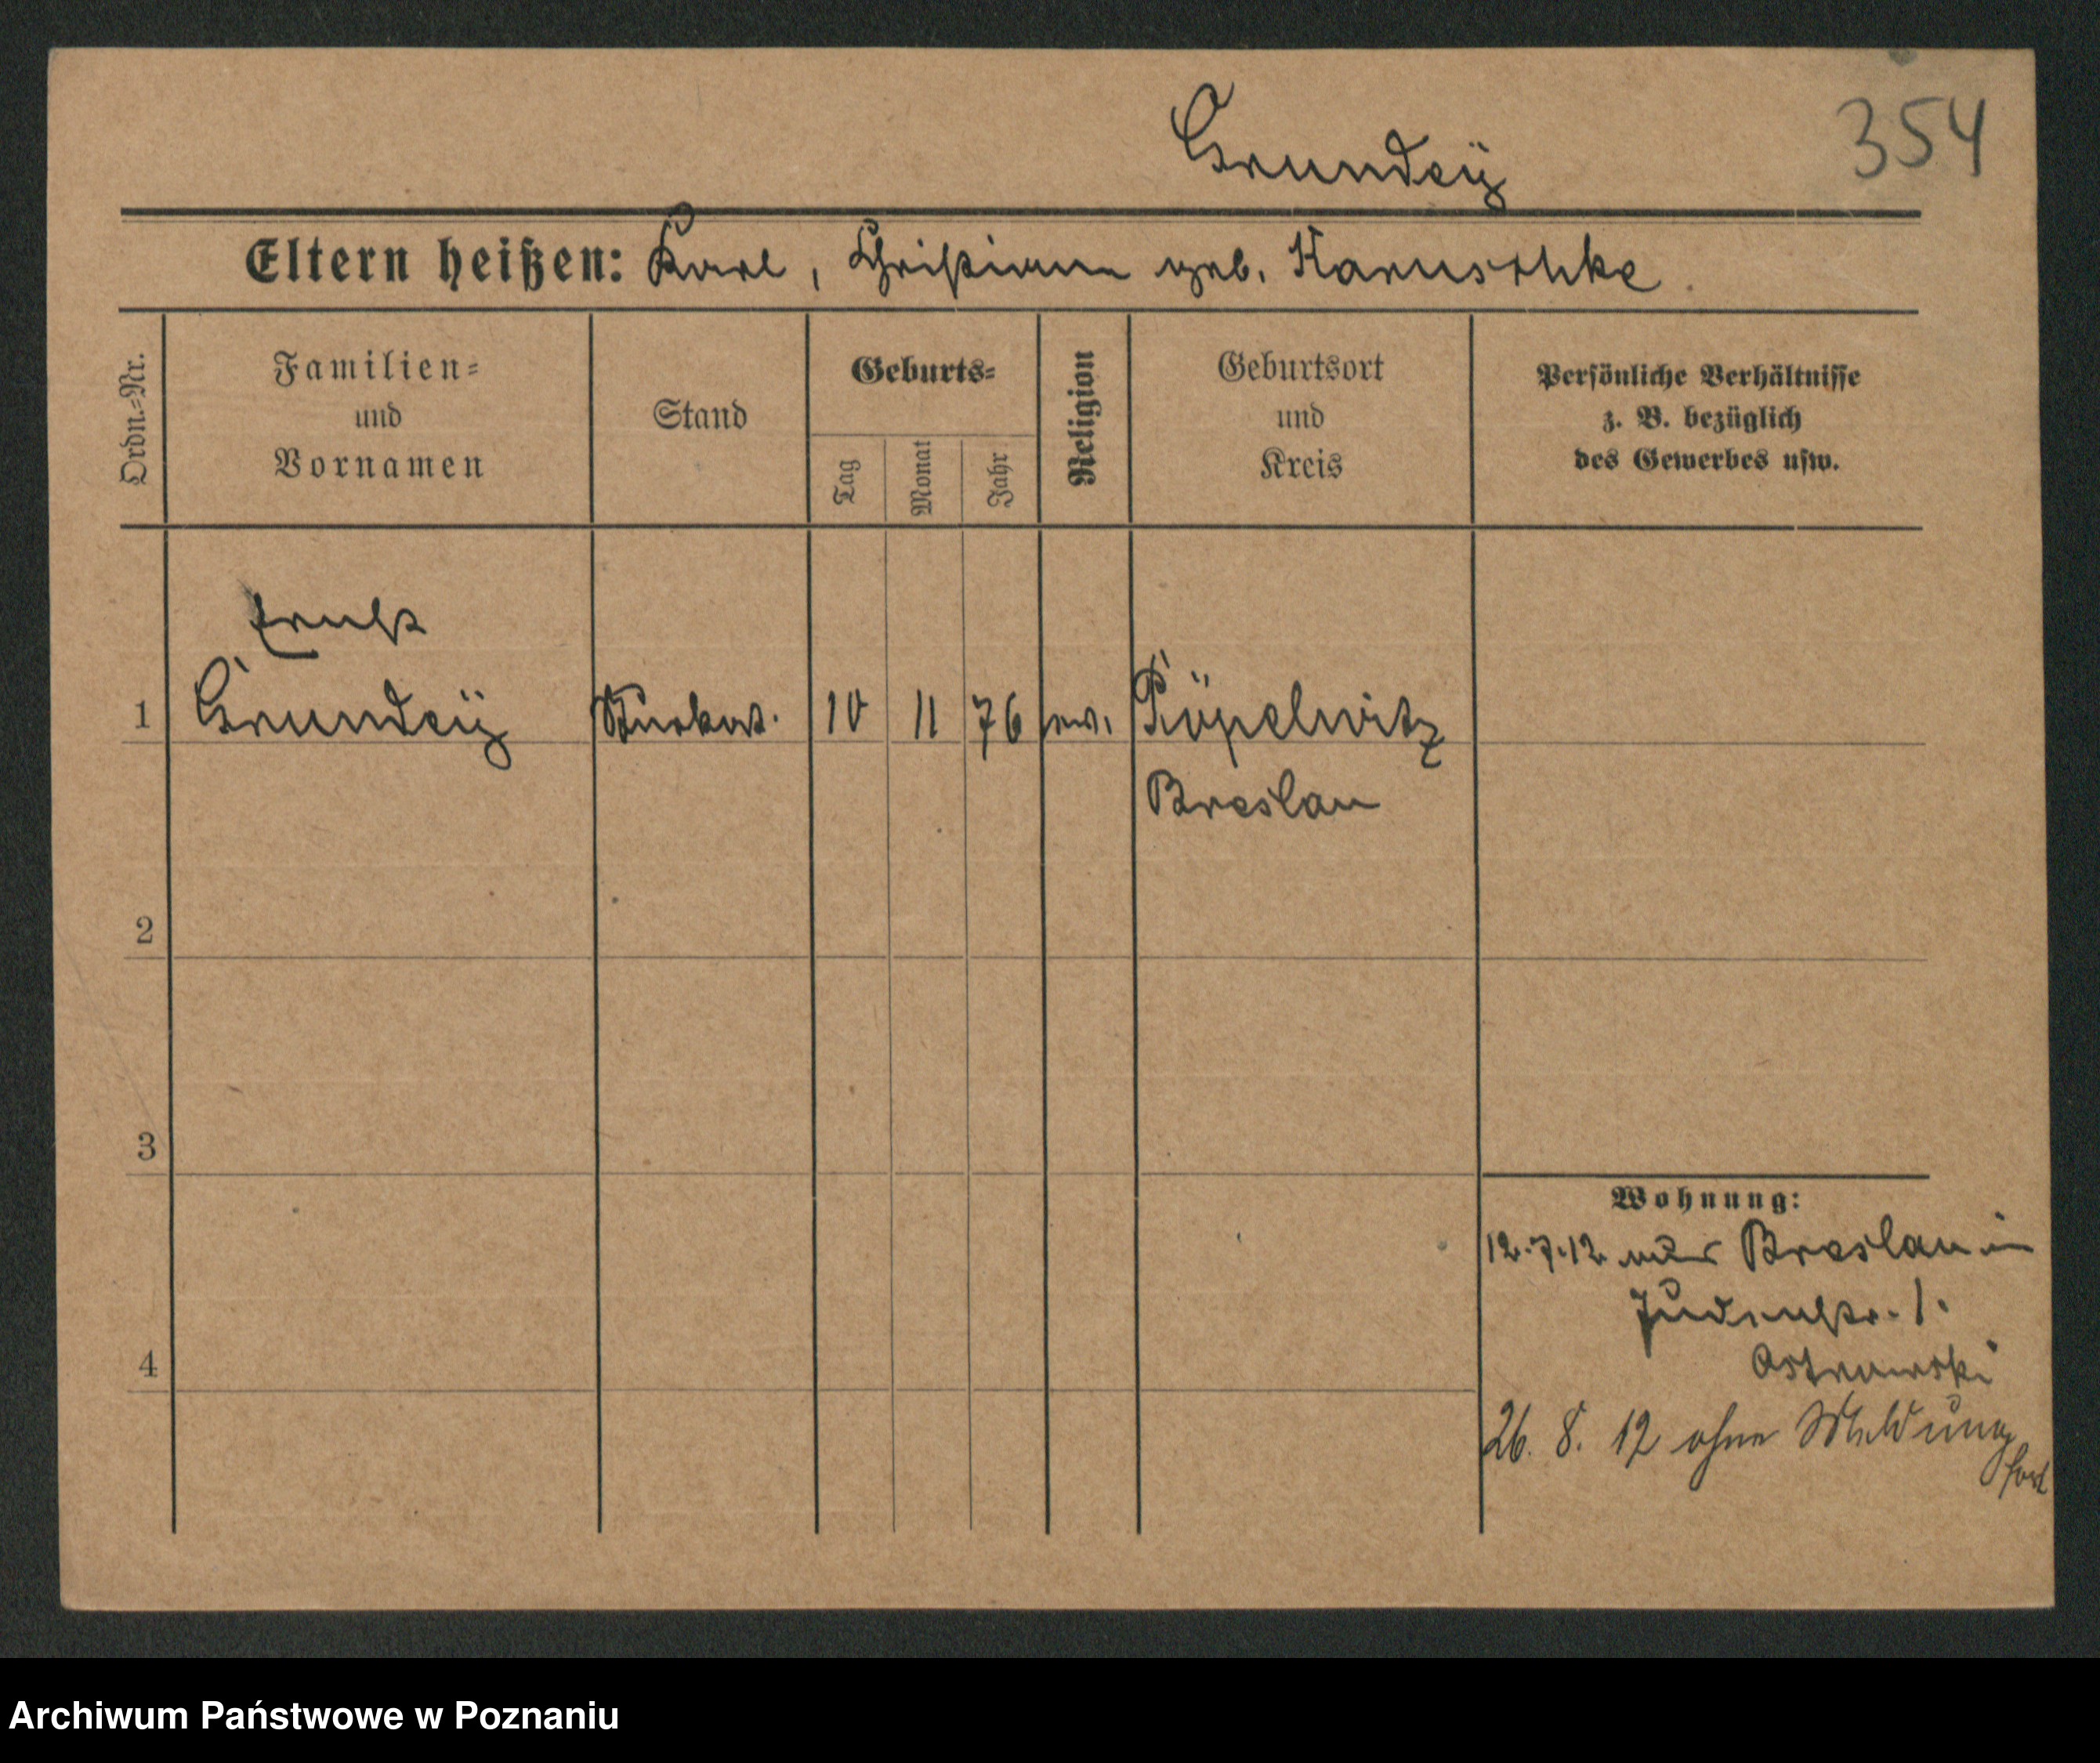 Grundeÿ
354
Eltern heißen: Karl, Christiane geb. Karuschke
Ordn.=Nr.
Familien=
und
Vornamen
Stand
Geburts=
Tag
Monat
Jahr
Religion
Geburtsort
und
Kreis
Persönliche Verhältnisse
z. B. bezüglich
des Gewerbes usw.
Ernst
1 Grundeÿ 10 11 76 ev. Pöpelwitz
Breslau
2
3
4
Wohnung:
12.7.12 aus Breslau in
Judenstr. 1.
Ostrowski
26. 8. 12 ohne Meldung
fort
Archiwum Państwowe w Poznaniu